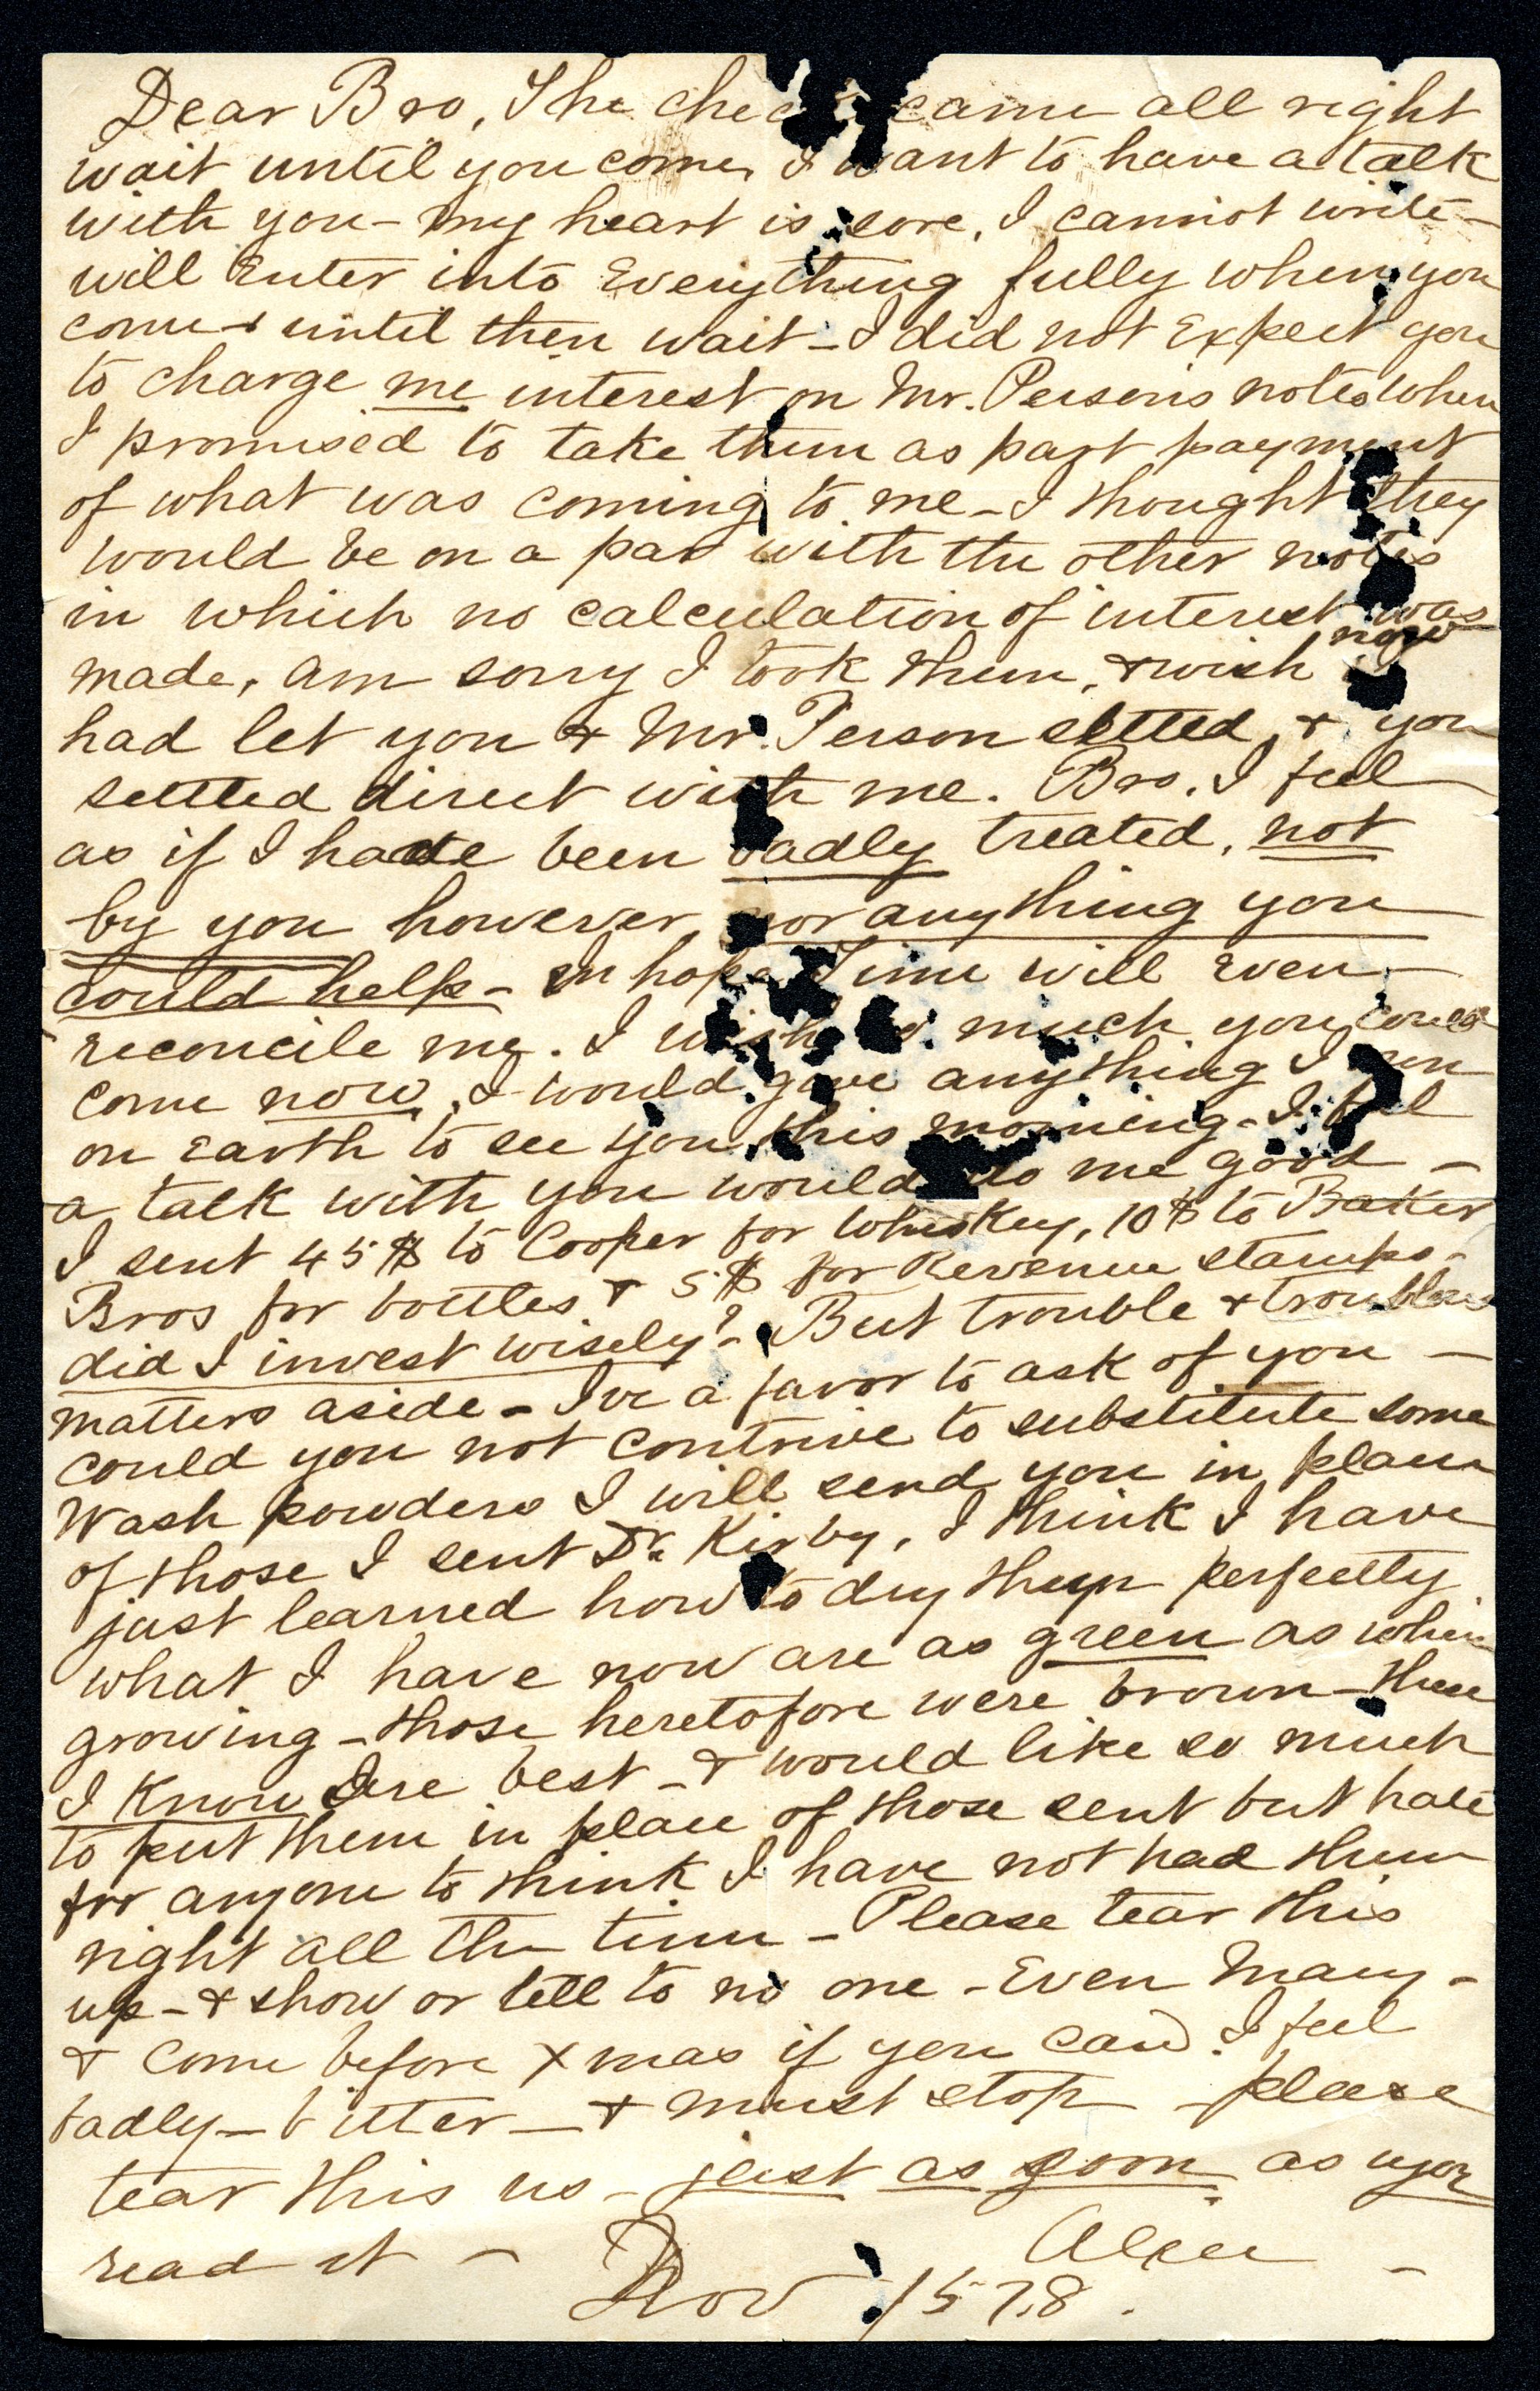 Dear Bro, The check came all right
wait until you come, I want to have a talk
with you - my heart is sore, I cannot write -
will Enter into Everything fully when you
come & until then wait - I did not Expect you
to charge me interest on Mr. Person's notes when
I promised to take them as part payment
of what was coming to me - I thought they
would be on a par with the other notes
in which no calculation of interest was
made, am sorry I took them, & wish now
had let you & Mr. Person settled, & you
settled direct with me. Bro, I feel
as if I have been badly treated, not
by you however, nor anything you
could help - hope Time will even
reconcile me. I wish so much you could
come now, I would give anything I own
on Earth to see you, this morning - I feel
a talk with you would do me good -
I sent 45$ to Cooper for whiskey, 10$ to Baker
Bros for bottles & 5$ for Revenue stamps -
did I invest wisely? - But trouble &
matters aside - I've a favor to ask of you -
could you not contrive to substitute some
Wash powders I will send you in place
of those I sent Dr. Kirby, I think I have
just learned how to dry them perfectly
what I have now are as green as when
growing - those heretofore were brown - these
I know are best - & would like so much
to put them in place of those sent but hate
for anyone to think I have not had them
right all the time - Please tear this
up - & show or tell to no one - Even Mary -
& Come before Xmas if you can. I feel
badly - bitter - & must stop - please
tear this up - just as soon as you
read it -
Nov 15 78.